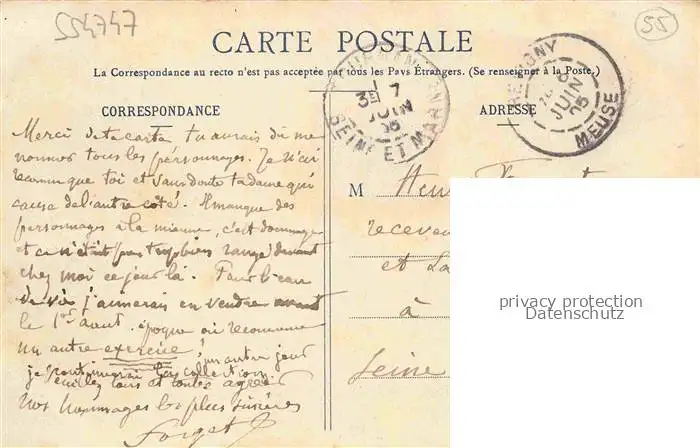 554747
55
CARTE POSTALE
La Correspondance au recto n'est pas acceptée par tous les Pays Étrangers. (Se renseigner à la Poste.)
CORRESPONDANCE
ADRESSE
7
JUIN
05
SEINE ET MARNE
REVIGNY
6
JUIN
05
MEUSE
Merci de ta carte tu aurais dû me
nommer tous les personnages. Je n'ai
reconnu que toi et sans doute ta dame qui
causa de l'autre côté. Il manque des
personnages à la mienne, c'est dommage
et ce n'était pas trop bien rangé devant
chez moi ce jour là. Pour l'eau
de vie j'aimerais en vendre avant
le 1er août. époque où recommence
un autre exercice, un autre jour
je continuerai ta collection
veuillez tous et toutes agréer
Nos hommages les plus sincères
Forget
M Henri
receveu
et La
à
Seine
privacy protection
Datenschutz